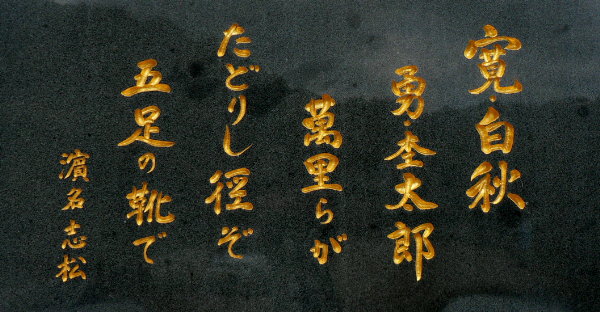 寛・白秋
勇杢太郎
萬里らが
たどりし徑ぞ
五足の靴で
濵名志松